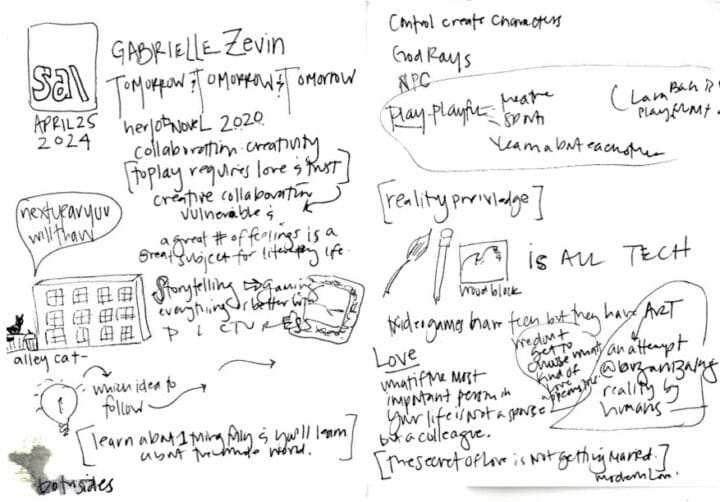 sal
APRIL 25
2024
GABRIELLE Zevin
TOMORROW & TOMORROW & TOMORROW
her 10th NOVEL 2020
collaboration-creativity
[to play requires love & trust]
creative collaboration
vulnerable &
a great # of feelings is a
great subject for literary life.
next year you
will thaw
Storytelling gaming
everything is better with
PICTURES
alley cat-
which idea to
follow
[learn about 1 thing fully & you'll learn
about the whole world.
both sides
Control create characters
God Rays
NPC
play-playful theatre
sports
learn about each other
[reality priviledge]
woodblock
is ALL TECH
videogames have been but they have ART
we don't
get to
choose what
kind of
love
an attempt
@ organizing
reality by
humans
LOVE
what if the most
important person in
your life is not a spouse
but a colleague.
[The secret of Love is not getting married.]
modern Love.